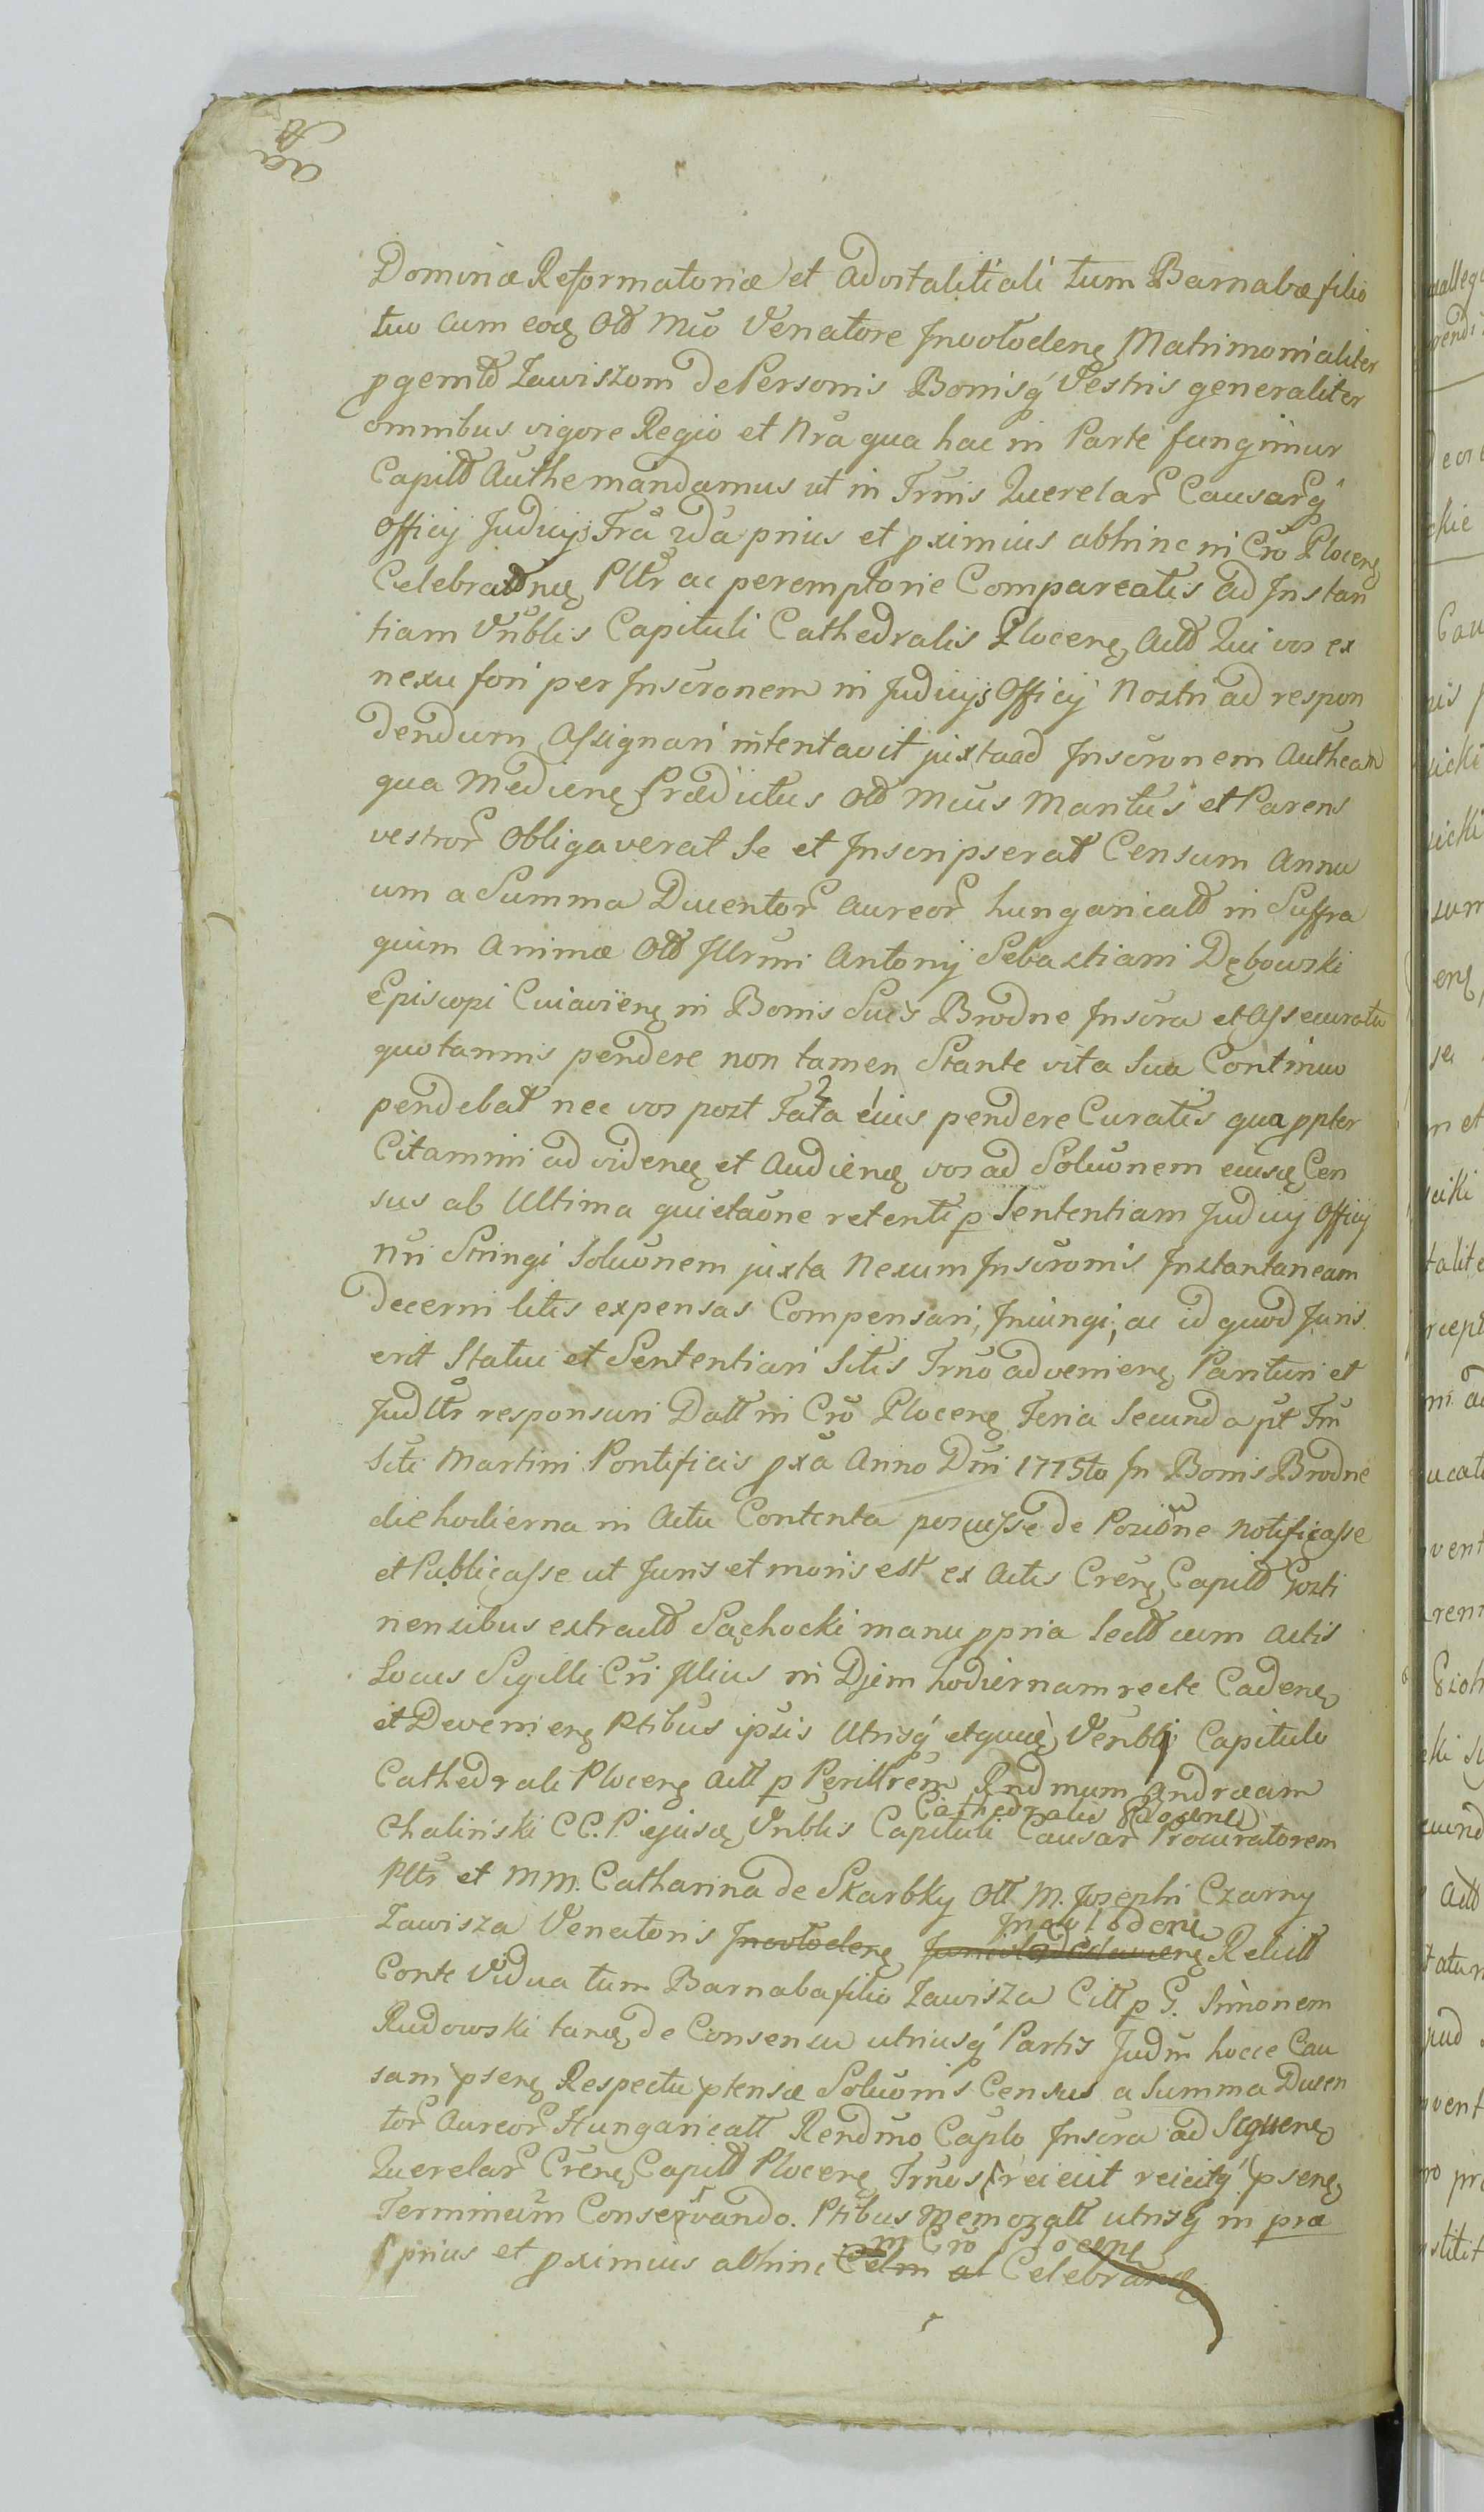 Dominæ Reformatoriæ et advitalitiali tum Barnabæ filio
tuo cum eodę Old Mčo Venatore Inovlodenę Matrimonialiter
pgenitð Zawiszom de Personis Bonisq́ Vestris generaliter
omnibus vigore Regio et Nrã qua hac in Parte fungimur
Capitð Authe mandamus ut in Trmis Querelar̃ Causarq́
Officij Judicijs Fra 2da prius et pximius abhinc in Crõ Plocenę
Celebraðnę Pltr ac peremptorie Compareatis ad Instan
tiam Vnblis Capituli Cathedralis Plocenę Actð Qui vos ex
nexu fori per Inscronem in Judicijs Officij Nostri ad respon
dendum Assignari intentavit juxta ad Inscronem Autheam
qua Medienę Prædictus Old Mčus Maritus et Parens
vestror̃ Obligaverat Se et Inscripserat Censum Annu
um a Summa Ducentor̃ Aureor̃ hungaricalð in Suffra
gium Animæ Olð Illrmi Antonij Sebastiani Dębowski
Episcopi Cuiavienę in Bonis Suis Brodne Inscra et Assecurata
quotannis pendere non tamen Stante vita Sua Continuo
pendebat nec vos post Fata eius pendere Curatis qua ppter
Citamini ad videnę et Audienę vos ad Soluonem eiusdę Cen
sus ab Ultima quietaone retenti p Sententiam Judicij Officij
Nri Stringi Soluonem juxta Nexum Inscronis Instantaneam
decerni litis expensas Compensari, Iniungi, ac id quod Juris
erit Statui et Sententiari Sitis Trno advenienę Parituri et
Judltr responsuri Datt in Crõ Plocenę Feria Secunda pt Fm
Scti Martini Pontificis pxã Anno Dni 1775to In Bonis Brodne
die hodierna in Actu Contenta posuisse de Posiõne Notificasse
et Publicasse ut Juris et moris est ex Actis Crenę Capitð Gosti
nensibus extractð Sachocki manu ppria lectð cum Actis
Locus Sigilli Cri Illius in Diem hodiernam recte Cadenę
et Devenienę Ptibus ipsis Utrisq́ Venbli Capitulo
Cathedrali Plocenę Actt p Perillrem Rndmum Andræam
Cathedralis Plocenę
Chaliński CC.P. ejusdę Vnblis Capituli Causar̃ Procuratorem
Pltr et MM. Catharina de Skarbky Olt M. Josephi Czarny
Inowlodenę
Zawisza Venatoris Inovlodenę Relictð
Conte Vidua tum Barnaba filio Zawisza Citt p G. Simonem
Rudowski tanę de Consensu utriusq́ Partis Judm hocce Cau
sam psenę Respectu ptensæ Soluonis Census a Summa Ducen
tor̃ Aureor̃ Hungaricalt Rendmo Caplo Inscra ad Sequenę
Querelar̃ Crenę Capitð Plocenę Trnos reiecit reicitq́ psenę
Terminum Conservando. Ptibus Memoratt utrisq́ in præ
in Crõ Plocenę
prius et pximius abhinc Celm al Celebranę